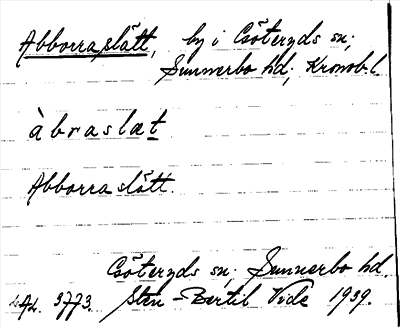 Abborraslätt, by i Göteryds sn;
Sunnerbo hd; Kronob. l.
àbraslæt
Abborraslätt.
Göteryds sn; Sunnerbo hd.
3773. Sten-Bertil Vide 1939.